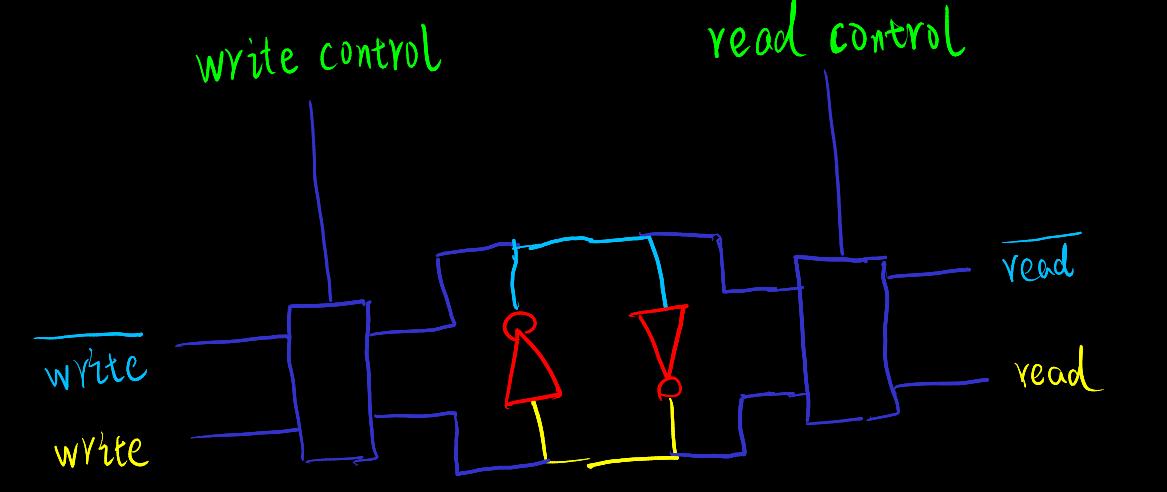 write control
read control
w̅r̅i̅t̅e̅
write
r̅e̅a̅d̅
read